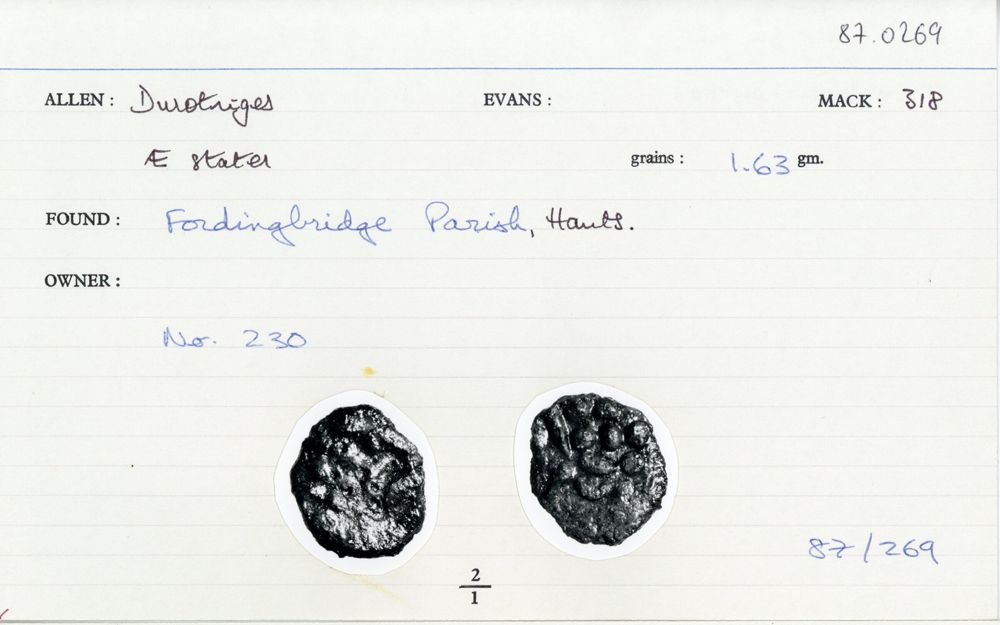 87.0269
ALLEN : Durotriges EVANS : MACK : 318
Æ stater grains : 1.63 gm.
FOUND : Fordingbridge Parish, Hants.
OWNER :
No. 230
87/269
2
1